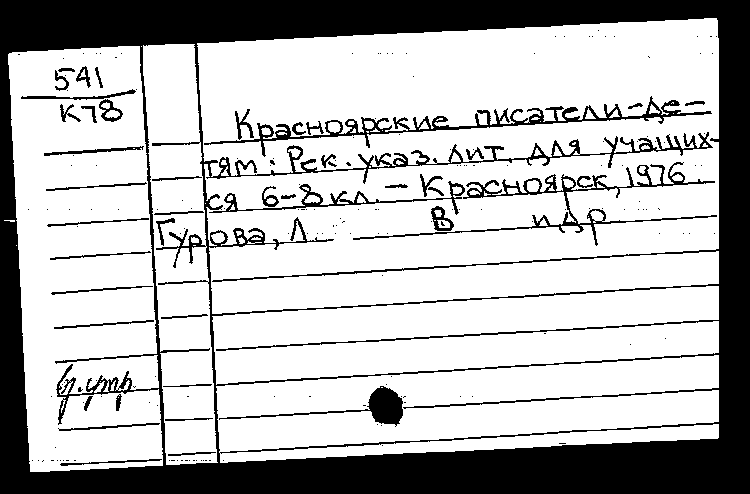 541
К78
Красноярские писатели-де-
тям: Рек. указ. лит. для учащих-
ся 6-8 кл. - Красноярск, 1976.
Гурова, Л. В и др